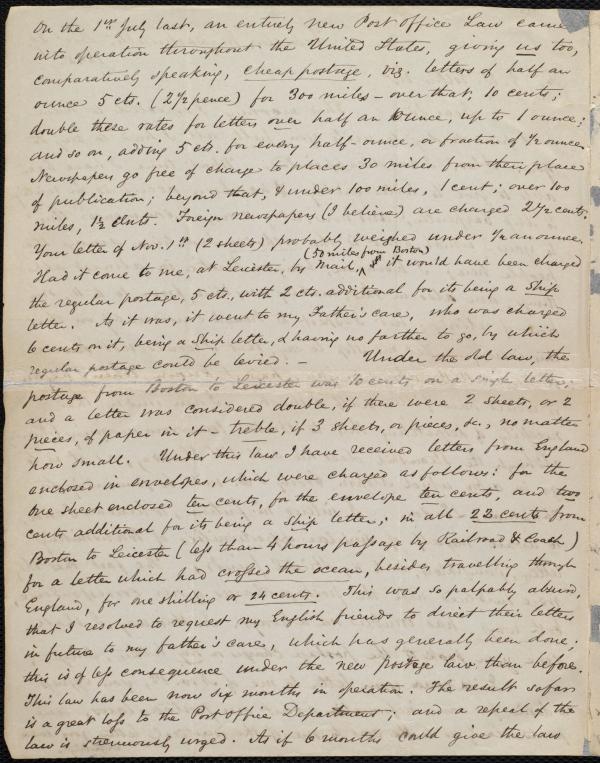 On the 1st July last, an entirely new Post Office Law came
into operation throughout the United States, giving us too,
comparatively speaking, cheap postage, viz. letters of half an
ounce 5 cts. (2 1/2 pence) for 300 miles – over that, 10 cents;
double these rates for letters over half an ounce, up to 1 ounce;
and so on, adding 5 cts. for every half-ounce, or fraction of 1/2 ounce.
Newspapers go free of charge to places 30 miles from their place
of publication; beyond that, & under 100 miles, 1 cent; over 100
miles, 1 1/2 cents. Foreign newspapers (I believe) are charged 2 1/2 cents.
Your letter of Nov. 1st (2 sheets) probably weighed under 1/2 an ounce.
(50 miles from Boston)
Had it come to me, at Leicester, by Mail, it would have been charged
the regular postage, 5 cts., with 2 cts. additional for its being a Ship
letter. As it was, it went to my Father's care, who was charged
6 cents on it, being a Ship letter, & having no farther to go, by which
regular postage could be levied. – Under the old law, the
postage from Boston to Leicester was 10 cents on a single letter;
and a letter was considered double, if there were 2 sheets, or 2
pieces, of paper in it – treble, if 3 sheets, or pieces, &c, no matter
how small. Under this law I have received letters from England
enclosed in envelopes, which were charged as follows: for the
one sheet enclosed ten cents, for the envelope ten cents, and two
cents additional for its being a Ship letter; in all 22 cents from
Boston to Leicester (less than 4 hours passage by Railroad & Coach)
for a letter which had crossed the ocean, besides travelling through
England, for one shilling or 24 cents. This was so palpably absurd,
that I resolved to request my English friends to direct their letters
in future to my father's care, which has generally been done;
this is of less consequence under the new postage law than before.
This law has been now six months in operation. The result so far
is a great loss to the Post Office Department; and a repeal of the
law is strenuously urged. As if 6 months could give the law